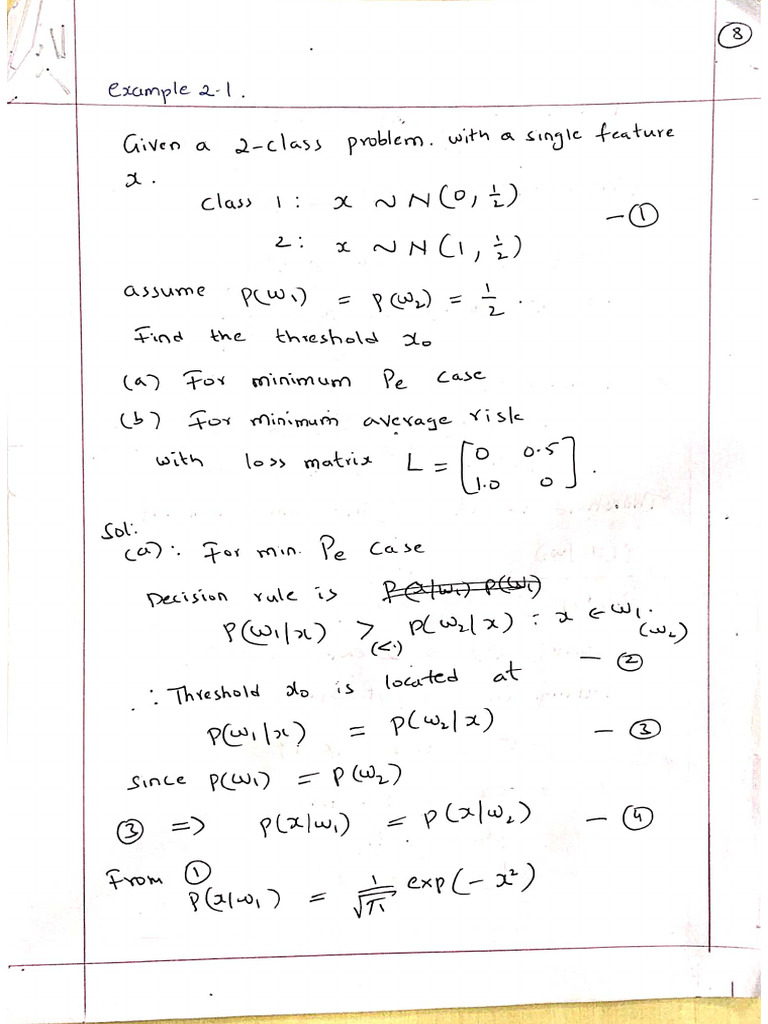 8
Example 2-1.
Given a 2-class problem. with a single feature
x.
Class 1: x ~ N(0, 1/2)
— ①
2: x ~ N(1, 1/2)
assume P(ω₁) = P(ω₂) = 1/2.
Find the threshold x₀
(a) For minimum Pe case
(b) For minimum average risk
with loss matrix L = [0 0.5
1.0 0].
Sol:
(a): For min. Pe case
Decision rule is P(x/ω₁) P(ω₁)
P(ω₁|x) > P(ω₂|x) : x ∈ ω₁.
(<) (ω₂)
— ②
∴ Threshold x₀ is located at
P(ω₁|x) = P(ω₂|x) — ③
Since P(ω₁) = P(ω₂)
③ => P(x|ω₁) = P(x|ω₂) — ④
From ①
P(x|ω₁) = 1/√π exp(-x²)